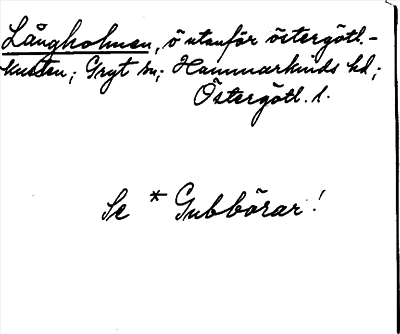 Långholmen, ö utanför östergötl.-
kusten; Gryt sn; Hammarkinds hd;
Östergötl. l.
Se * Gubbörar!